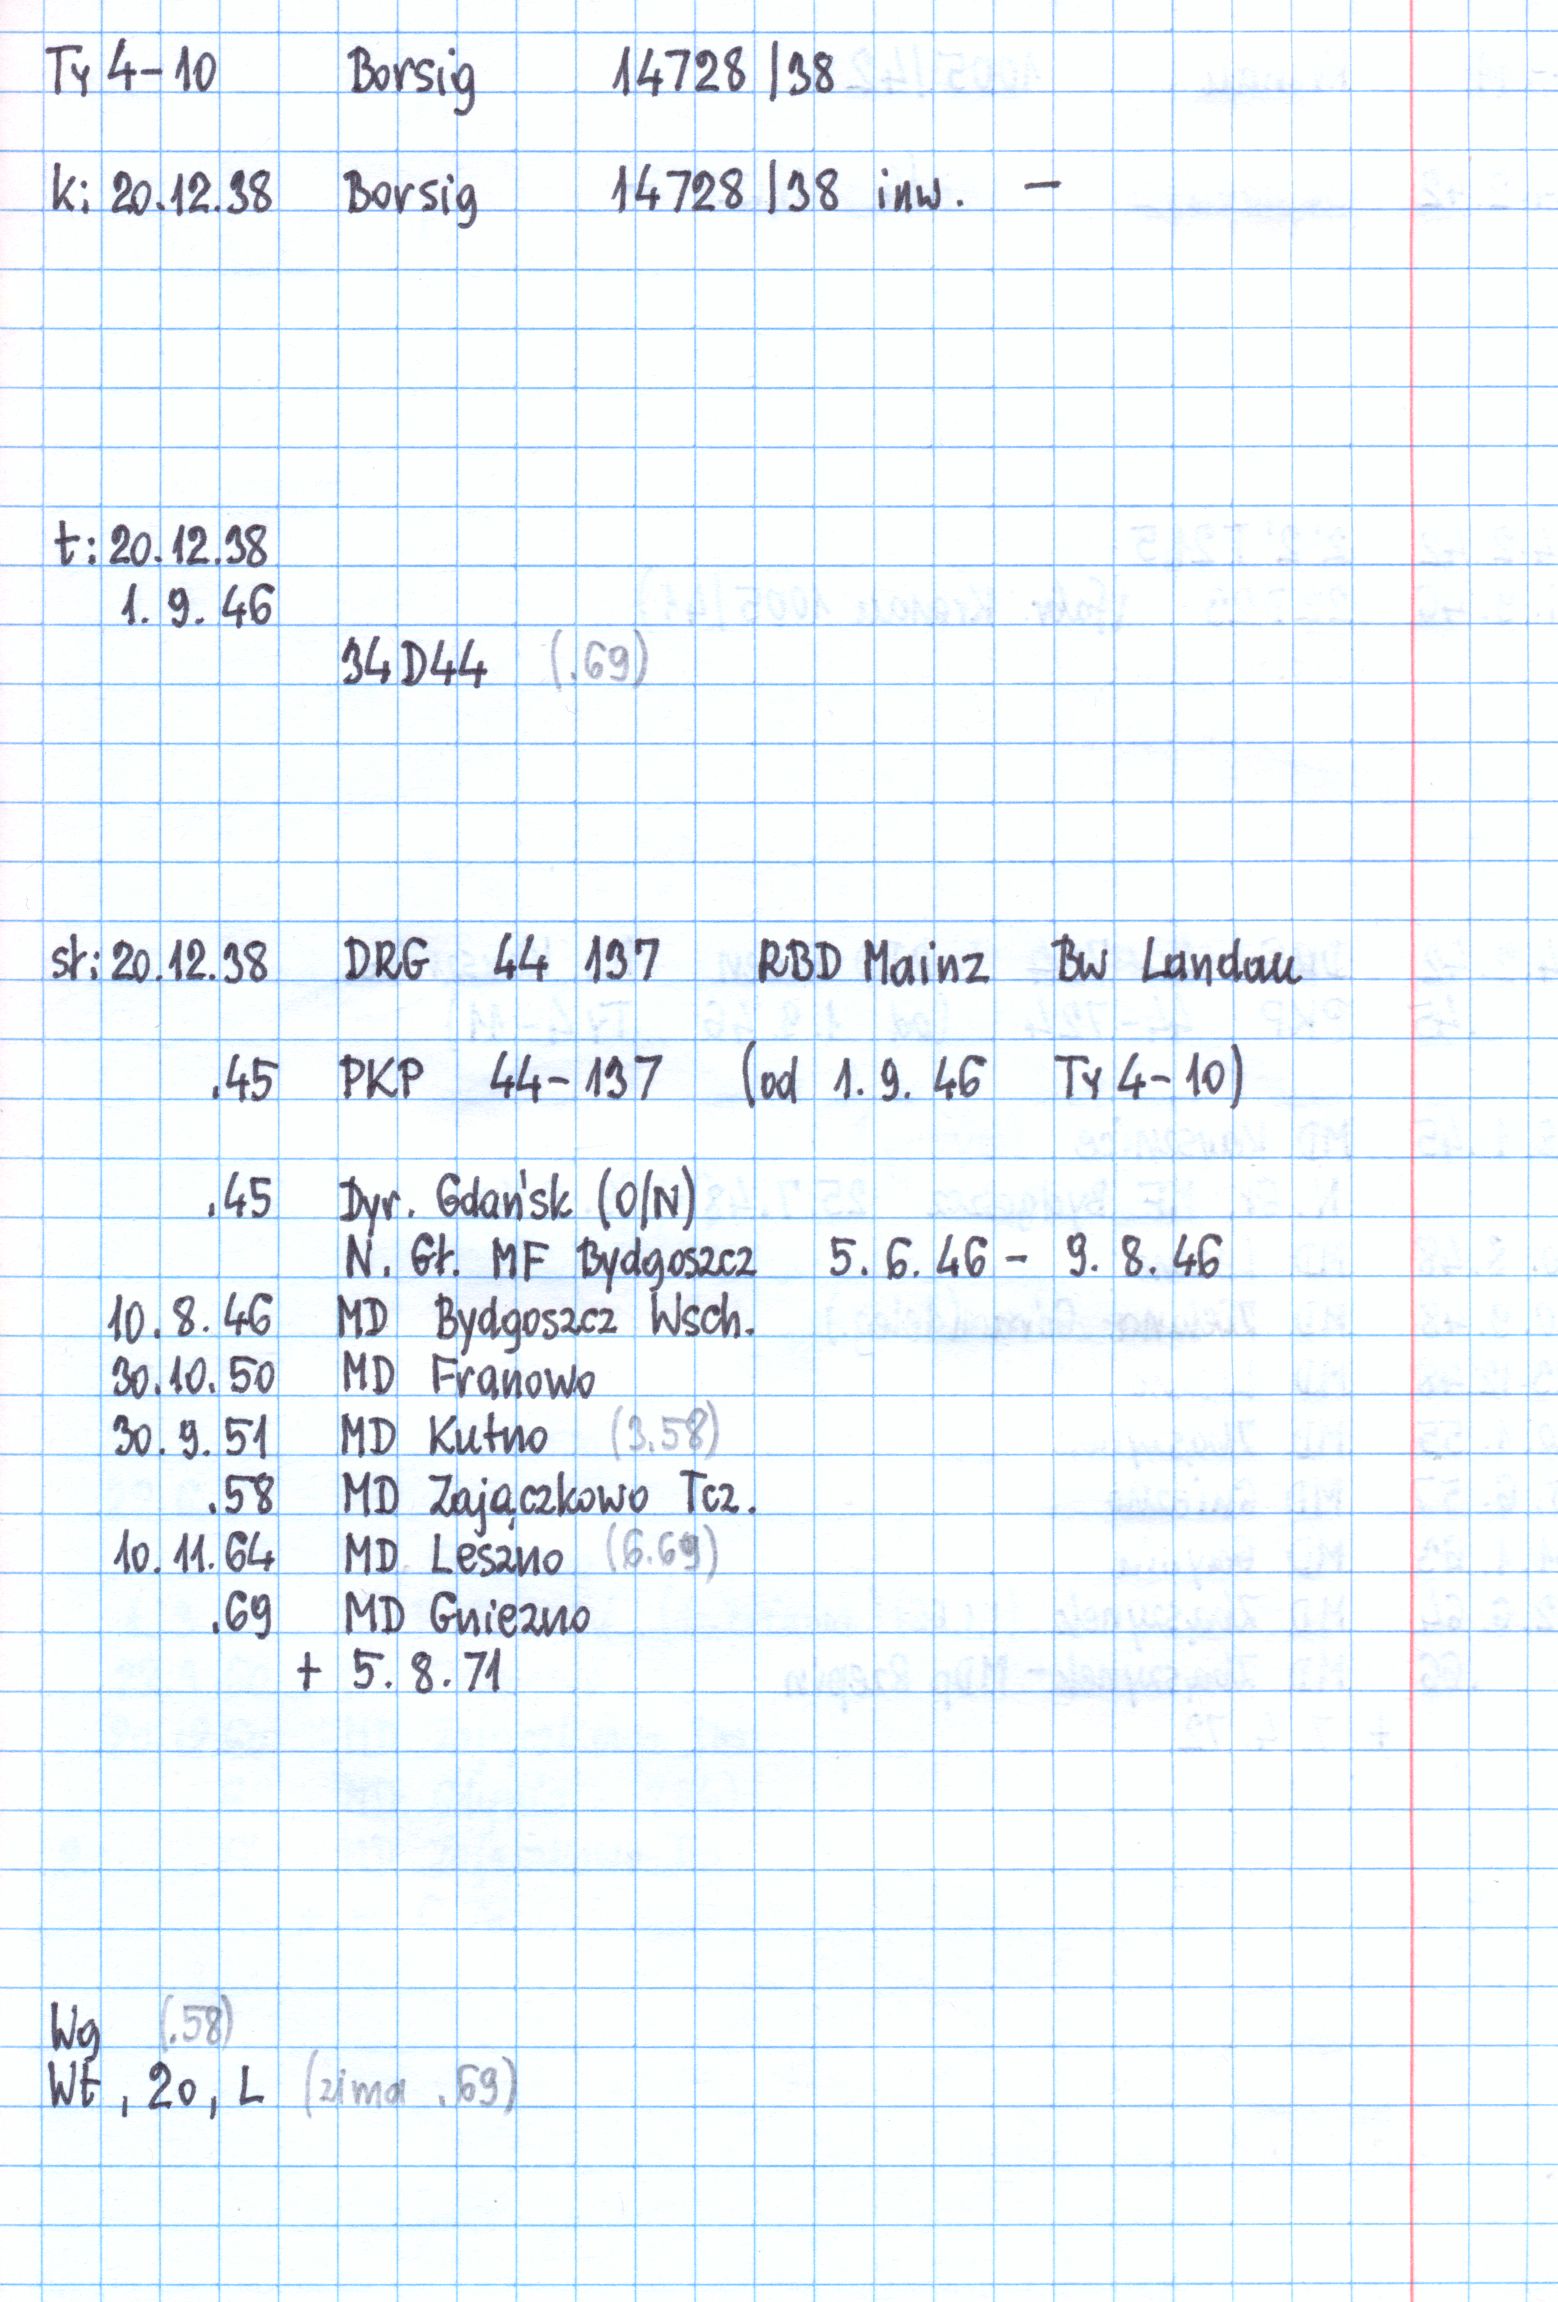 Ty 4-10 Borsig 14728/38
k: 20.12.38 Borsig 14728/38 inw. —
t: 20.12.38
1. 9. 46
34D44 (.69)
st: 20.12.38 DRG 44 137 RBD Mainz Bw Landau
.45 PKP 44-137 (od 1. 9. 46 Ty 4-10)
.45 Dyr. Gdańsk (O/N)
N. Gł. MF Bydgoszcz 5. 6. 46 - 9. 8. 46
10. 8. 46 MD Bydgoszcz Wsch.
30.10.50 MD Franowo
30. 9. 51 MD Kutno (3.58)
.58 MD Zajączkowo Tcz.
10. 11. 64 MD Leszno (6.69)
.69 MD Gniezno
+ 5. 8. 71
Wg (.58)
Wt, 2o, L (zima .69)